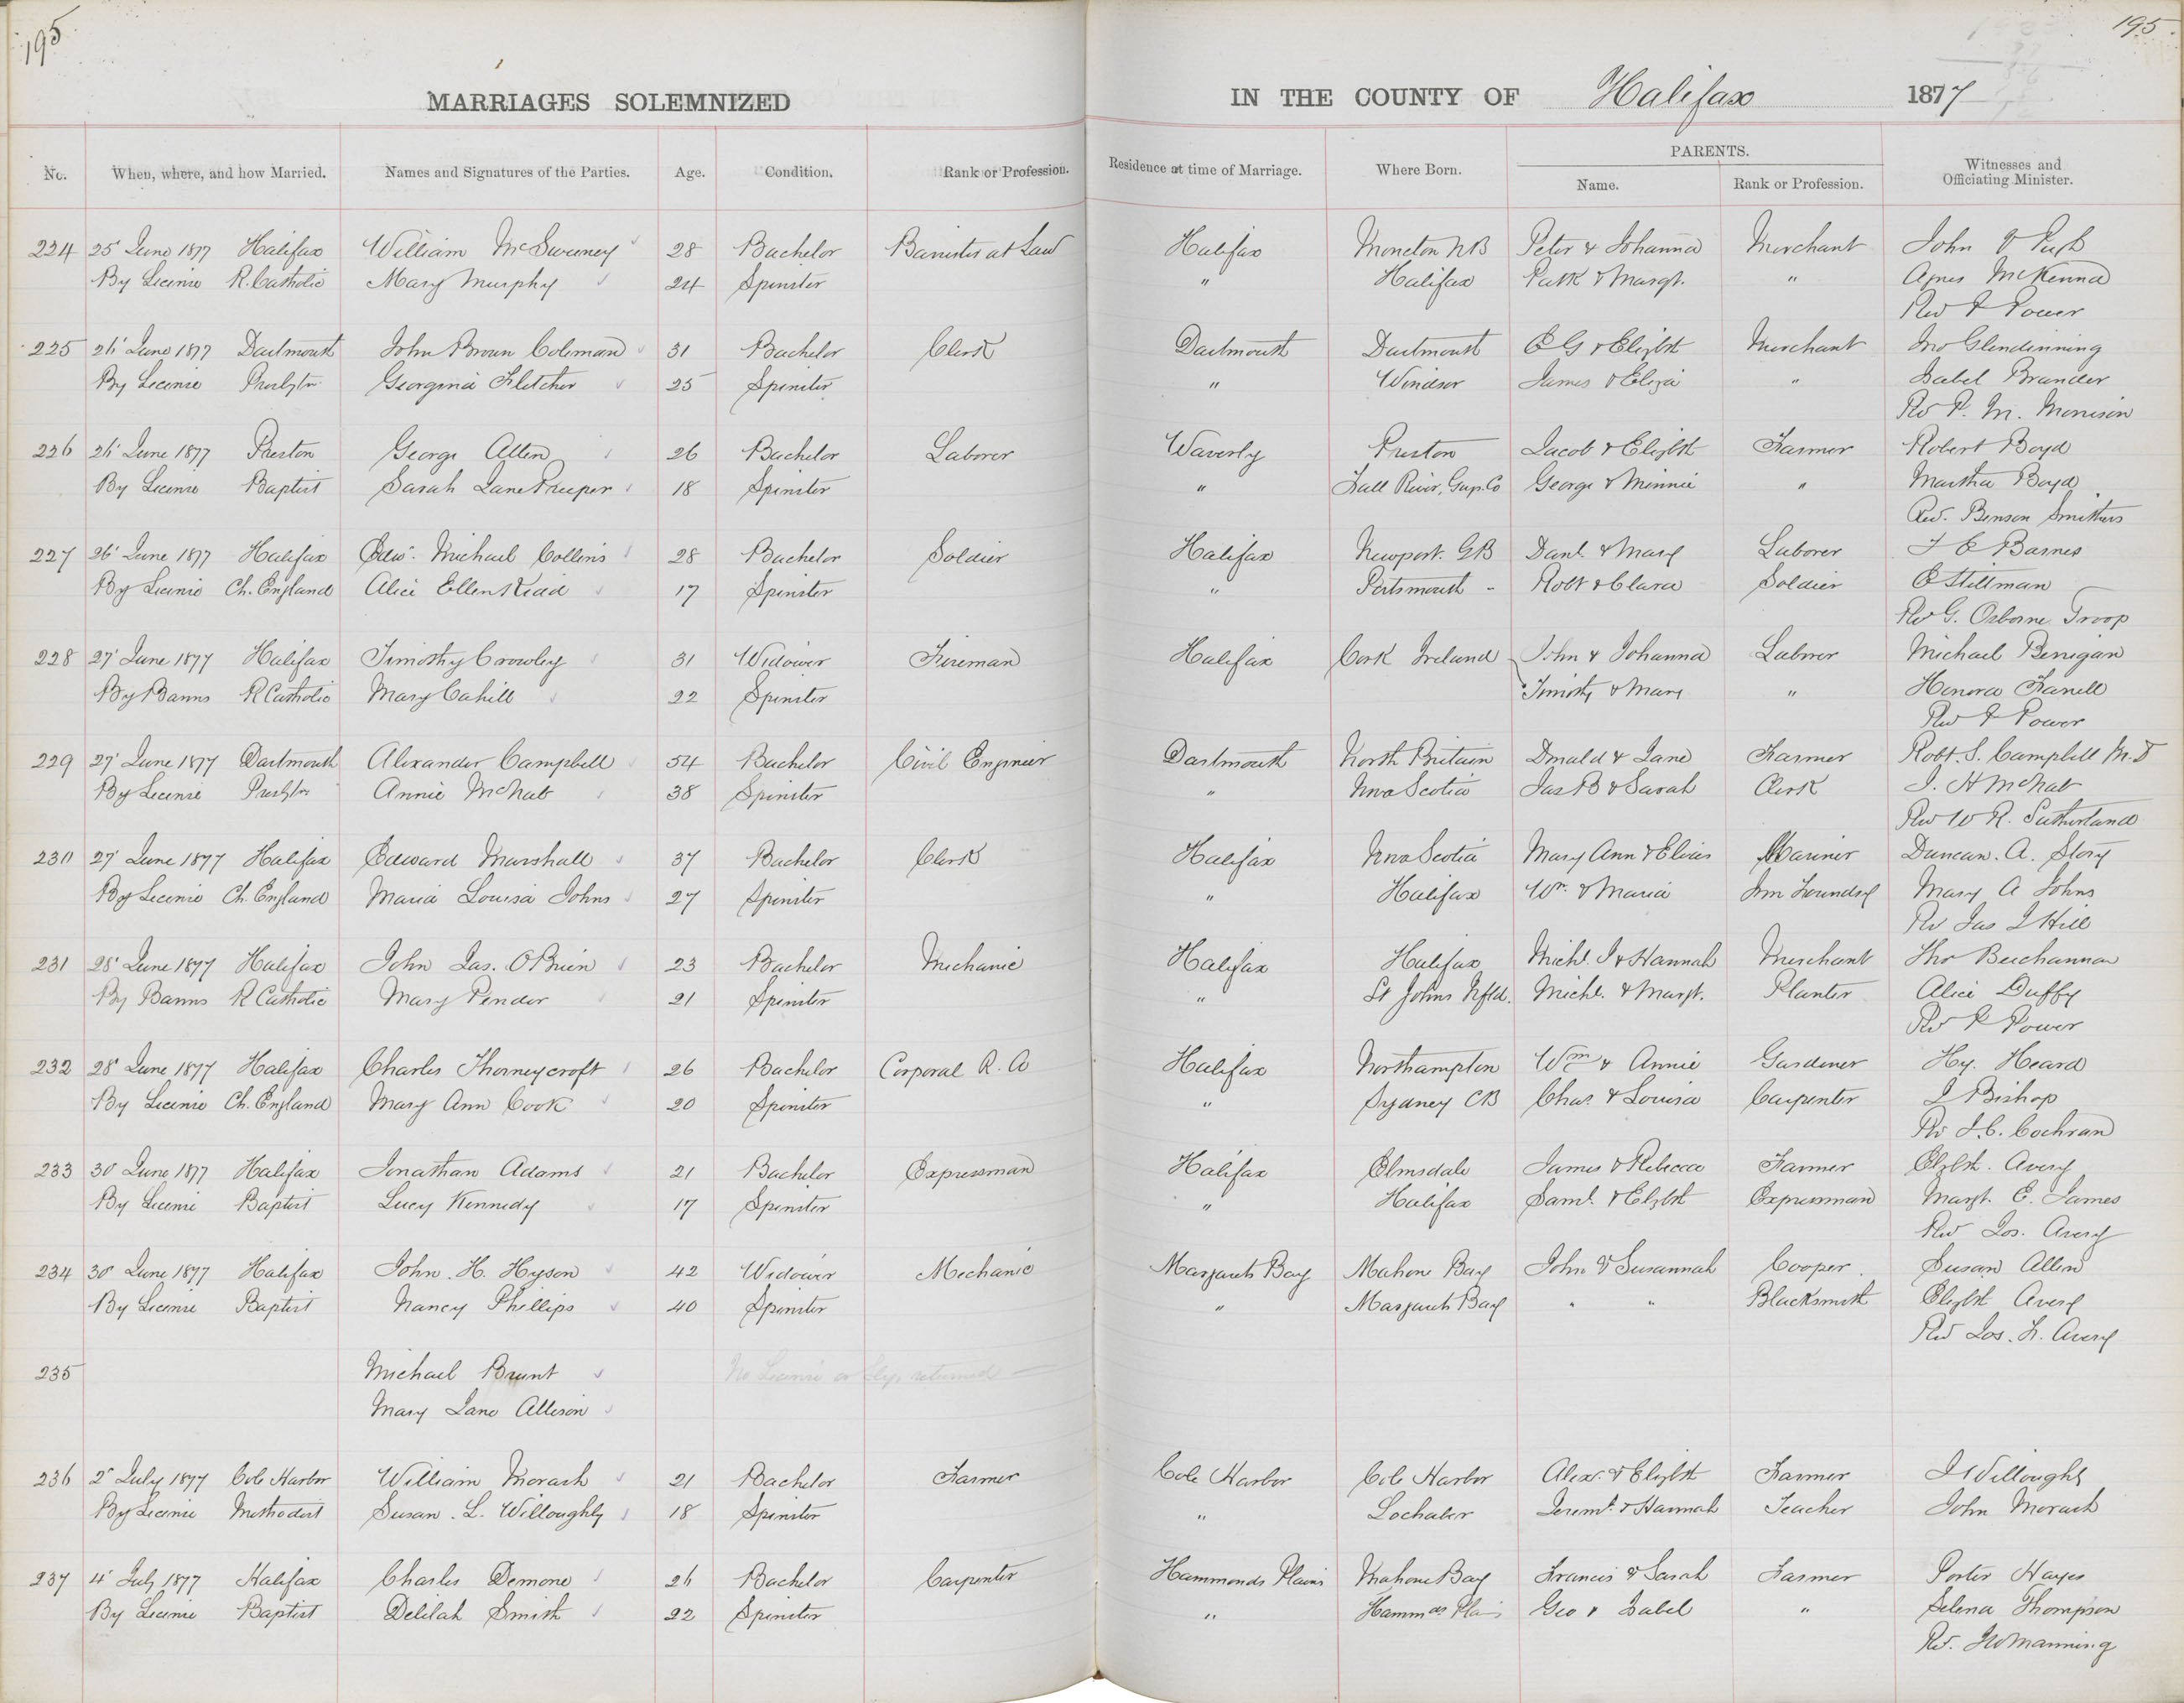 195
195.
MARRIAGES SOLEMNIZED IN THE COUNTY OF Halifax 1877
No. When, where, and how Married. Names and Signatures of the Parties. Age. Condition. Rank or Profession. Residence at time of Marriage. Where Born. PARENTS. Name. Rank or Profession. Witnesses and Officiating Minister.
224 25' June 1877 Halifax William McSweeney 28 Bachelor Barrister at Law Halifax Moncton NB Peter & Johanna Merchant John
By License R. Catholic Mary Murphy 24 Spinster " Halifax Patk & Margt. " Agnes McKenna
Rev P Power
225 26' June 1877 Dartmouth John Brown Coleman 31 Bachelor Clerk Dartmouth Dartmouth E G & Elizbth Merchant Jno Glendinning
By License Presbytn Georgina Fletcher 25 Spinster " Windsor James & Eliza " Isabel Brander
Rev P. M. Morrison
226 26' June 1877 Preston George Allen 26 Bachelor Laborer Waverly Preston Jacob & Elizbth Farmer Robert Boyd
By License Baptist Sarah Jane Preeper 18 Spinster " Fall River, Guys. Co George & Minnie " Martha Boyd
Rev. Benson Smithers
227 26' June 1877 Halifax Edw. Michael Collins 28 Bachelor Soldier Halifax Newport. GB Danl. & Mary Laborer J C Barnes
By License Ch. England Alice Ellen Kidd 17 Spinster " Portsmouth - Robt & Clara Soldier E Stillman
Rev G. Osborne Troop
228 27' June 1877 Halifax Timothy Crowley 31 Widower Fireman Halifax Cork Ireland John & Johanna Laborer Michael Benigan
By Banns R Catholic Mary Cahill 22 Spinster Timothy & Mary " Honora Farrell
Rev P Power
229 27' June 1877 Dartmouth Alexander Campbell 54 Bachelor Civil Engineer Dartmouth North Britain Donald & Jane Farmer Robt. S. Campbell M.D
By License Presbytn Annie McNab 38 Spinster " Nova Scotia Jas B & Sarah Clerk J. H McNab
Rev W R. Sutherland
230 27' June 1877 Halifax Edward Marshall 37 Bachelor Clerk Halifax Nova Scotia Mary Ann & Elias Mariner Duncan. A. Story
By License Ch. England Maria Louisa Johns 27 Spinster " Halifax Wm. & Maria Irn Foundry Mary A Johns
Rev Jas J Hill
231 28' June 1877 Halifax John Jas. O'Brien 23 Bachelor Mechanic Halifax Halifax Michl. J & Hannah Merchant Tho Buchannan
By Banns R Catholic Mary Pender 21 Spinster " St Johns Nfld. Michl. & Margt. Planter Alice Duffy
Rev P Power
232 28' June 1877 Halifax Charles Thorneycroft 26 Bachelor Corporal R. A Halifax Northampton Wm & Annie Gardener Hy. Heard
By License Ch. England Mary Ann Cook 20 Spinster " Sydney CB Chas. & Louisa Carpenter J Bishop
Rev J.C. Cochran
233 30' June 1877 Halifax Jonathan Adams 21 Bachelor Expressman Halifax Elmsdale James & Rebecca Farmer Elzbth. Avery
By License Baptist Lucy Kennedy 17 Spinster " Halifax Saml. & Elzbth Expressman Margt. E. James
Rev Jos. Avery
234 30' June 1877 Halifax John. H. Hyson 42 Widower Mechanic Margarets Bay Mahone Bay John & Susannah Cooper Susan Allen
By License Baptist Nancy Phillips 40 Spinster " Margarets Bay " " Blacksmith Elizbth Avery
Rev Jos. F. Avery
235 Michael Brunt No License or Slip returned
Mary Jane Allison
236 2' July 1877 Cole Harbor William Morash 21 Bachelor Farmer Cole Harbor Cole Harbor Alexr. & Elizbth Farmer J Willoughby
By License Methodist Susan. L. Willoughby 18 Spinster " Lochaber Jeremh. & Hannah Teacher John Morash
237 4' July 1877 Halifax Charles Demone 26 Bachelor Carpenter Hammonds Plains Mahone Bay Francis & Sarah Farmer Porter Hayes
By License Baptist Delilah Smith 22 Spinster " Hammds Plains Geo & Isabel " Selena Thompson
Rev. J W Manning